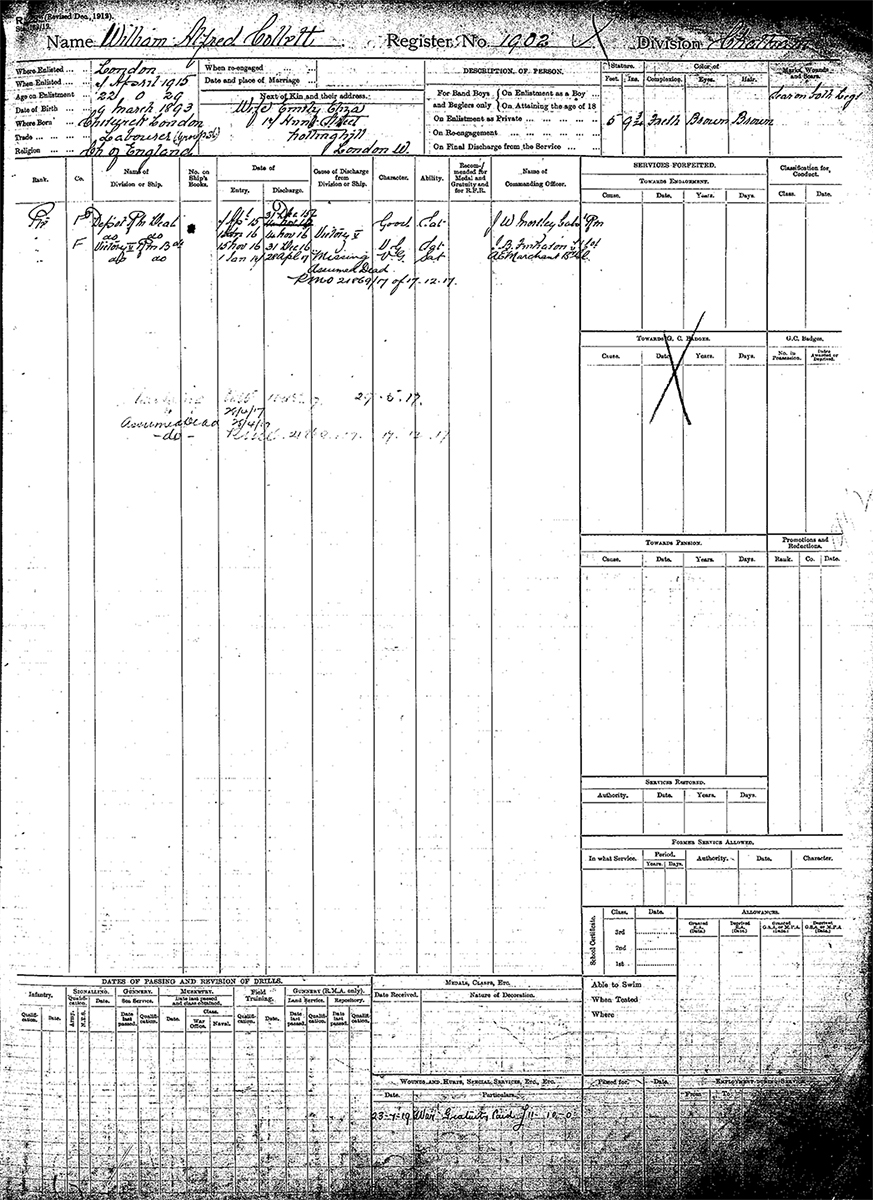 (Revised Dec., 1912).
Name William Alfred Collett Register No. 1902 Division Chatham
Where Enlisted ... London
When Enlisted ... April 1915
Age on Enlistment 22 29
Date of Birth ... 9 March 1893
Where Born ... Chiswick London
Trade ... Labourer
Religion ... Ch of England
When re-engaged ...
Date and place of Marriage ...
Next of Kin and their address.
Wife Emily Eliza
Hunt Street
Nottinghill
London W.
DESCRIPTION OF PERSON.
For Band Boys and Buglers only
On Enlistment as a Boy ...
On Attaining the age of 18
On Enlistment as Private ...
On Re-engagement ...
On Final Discharge from the Service ...
Stature. Color of
Feet. Ins. Complexion. Eyes. Hair.
Marks, Wounds and Scars.
5 9 Fresh Brown Brown
Scar on both Legs
Rank. Co. Name of Division or Ship. No. on Ship's Books. Date of Entry. Discharge. Cause of Discharge from Division or Ship. Character. Ability. Recommended for Medal and Gratuity and for R.F.R. Name of Commanding Officer.
Pte Depot Rm Deal 31 Dec 15 Good Sat
do do 1 Jan 16 14 Nov 16 Victory V
F Victory V Rm Bde 15 Nov 16 31 Dec 16 V.G. Sat
do do 1 Jan 17 28 Apl 17 Missing V.G. Sat A.E. Marchant
Assumed Dead
RMO 21869/17 of 17.12.17.
29.5.17.
28/4/17
Assumed Dead 28/4/17
-do- 21869.17. 17.12.17
SERVICES FORFEITED.
TOWARDS ENGAGEMENT.
Cause. Date. Years. Days.
Classification for Conduct.
Class. Date.
TOWARDS G. C. BADGES.
Cause. Date. Years. Days.
G.C. Badges.
No. in Possession. Dates Awarded or Deprived.
TOWARDS PENSION.
Cause. Date. Years. Days.
Promotions and Reductions.
Rank. Co. Date.
SERVICES RESTORED.
Authority. Date. Years. Days.
FORMER SERVICE ALLOWED.
In what Service. Period. Years. Days. Authority. Date. Character.
School Certificate.
Class. Date.
3rd
2nd
1st
ALLOWANCES.
Granted Deprived Granted G.S.A. or M.P.A. (Date.) Deprived G.S.A. or M.P.A. (Date.)
Able to Swim
When Tested
Where
DATES OF PASSING AND REVISION OF DRILLS.
Infantry. SIGNALLING. GUNNERY. MUSKETRY. Field Training. GUNNERY (R.M.A. only).
Sea Service. Date last passed and class obtained. Land Service. Repository.
Qualification. Date. Qualification. Army. Date. Date last passed. Qualification. Date. Class. War Office. Naval. Qualification. Date. Date last passed. Qualification. Date last passed. Qualification.
MEDALS, CLASPS, ETC.
Date Received. Nature of Decoration.
WOUNDS AND HURTS, SPECIAL SERVICES, ETC., ETC.
Date. Particulars.
23-7-19 War Gratuity Paid £11-10-0
Passed for. Date.
From To